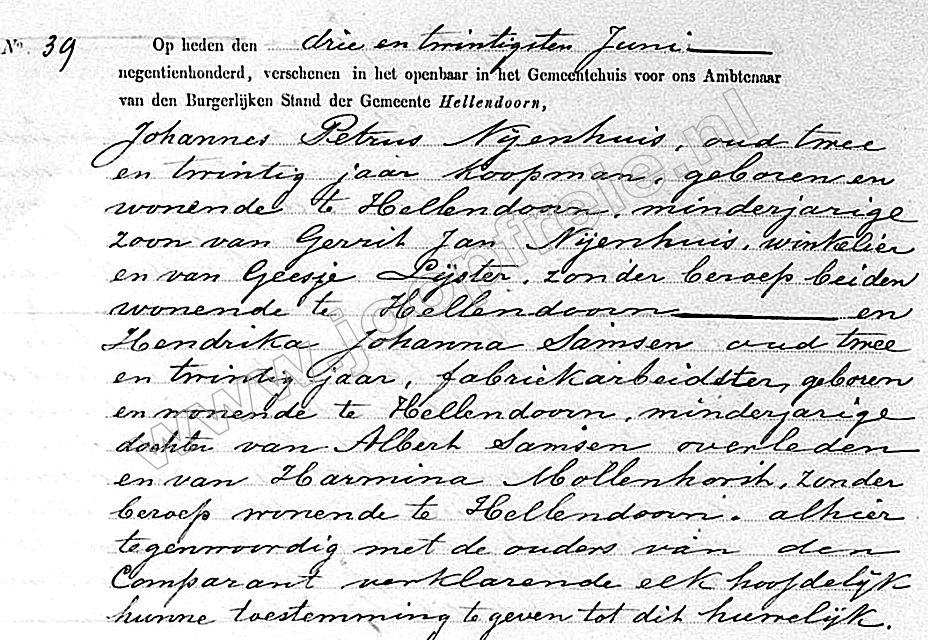 No. 39 Op heden den drie en twintigsten Juni
negentienhonderd, verschenen in het openbaar in het Gemeentehuis voor ons Ambtenaar
van den Burgerlijken Stand der Gemeente Hellendoorn,
Johannes Petrus Nijenhuis, oud twee
en twintig jaar koopman, geboren en
wonende te Hellendoorn, minderjarige
zoon van Gerrit Jan Nijenhuis, winkelier
en van Geesje Lijster, zonder beroep beiden
wonende te Hellendoorn en
Hendrika Johanna Samsen oud twee
en twintig jaar, fabriekarbeidster, geboren
en wonende te Hellendoorn, minderjarige
dochter van Albert Samsen overleden
en van Harmina Mollenhorst, zonder
beroep wonende te Hellendoorn. alhier
tegenwoordig met de ouders van den
Comparant verklarende elk hoofdelijk
hunne toestemming te geven tot dit huwelijk.
www.joopfreie.nl